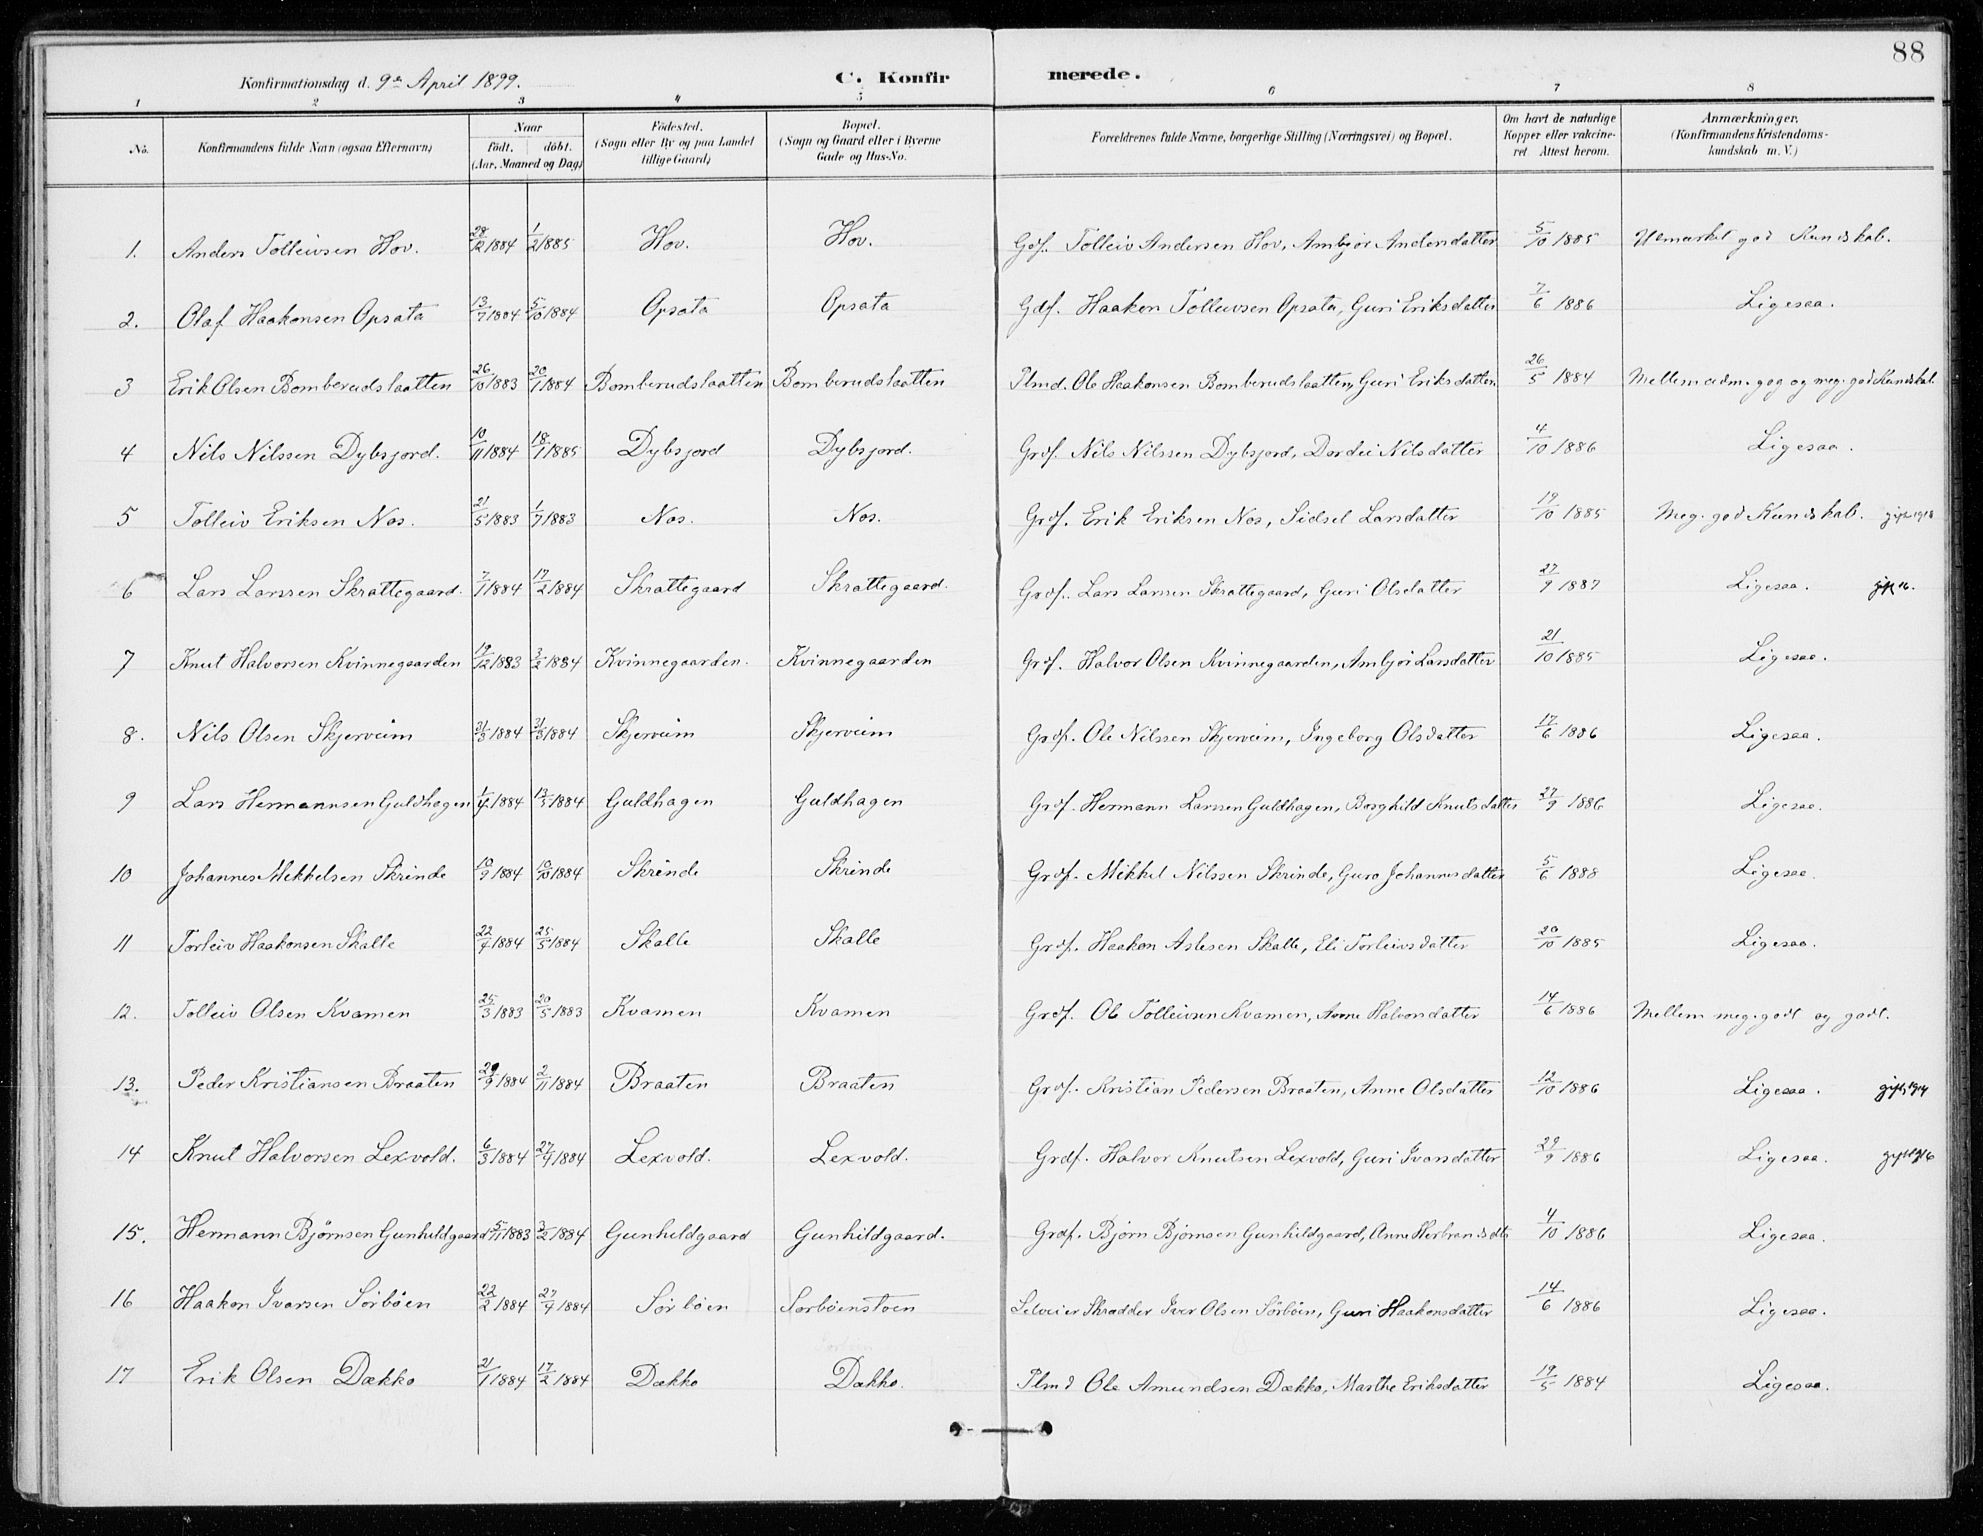 88
Konfirmationsdag d. 9de April 1899. C. Konfirmerede.
1 2 3 4 5 6 7 8
No. Konfirmandens fulde Navn (ogsaa Efternavn) Naar født. døbt. (Aar, Maaned og Dag) Fødested. (Sogn eller By og paa Landet tillige Gaard) Bopæl. (Sogn og Gaard eller i Byerne Gade og Hus-No. Forældrenes fulde Navne, borgerlige Stilling (Næringsvei) og Bopæl. Om havt de naturlige Kopper eller vakcineret Attest herom. Anmærkninger. (Konfirmandens Kristendomskundskab m. V.)
1. Anders Tolleivsen Hov. 28/12 1884 1/2 1885 Hov. Hov. Tolleiv Andersen Hov, Ambjør Andersdatter 5/10 1885 Udmærket god Kundskab.
2. Olaf Haakonsen Opsata 13/7 1884 5/10 1884 Opsata Opsata Gdf. Haakon Tolleivsen Opsata, Guri Eriksdatter 7/6 1886 Ligesaa.
3 Erik Olsen Bomberudslaatten 26/10 1883 20/1 1884 Bomberudslaatten Bomberudslaatten Plmd. Ole Haakonsen Bomberudslaatten, Guri Eriksdatter 26/5 1884 Mellem udm. god og meg. god Kundskab.
4 Nils Nilssen Dybsjord. 10/11 1884 18/1 1885 Dybsjord Dybsjord. Grdf. Nils Nilssen Dybsjord, Dordei Nilsdatter 4/10 1886 Ligesaa.
5 Tolleiv Eriksen Nos. 21/5 1883 1/7 1883 Nos. Nos. Grdf. Erik Eriksen Nos, Sidsel Larsdatter 19/10 1885 Meg. god Kundskab.
6 Lars Larssen Skrattegaard. 7/1 1884 17/2 1884 Skrattegaard Skrattegaard. Grdf. Lars Larssen Skrattegaard, Guri Olsdatter 27/9 1887 Ligesaa.
7 Knut Halvorsen Kvinnegaarden 19/12 1883 3/2 1884 Kvinnegaarden. Kvinnegaarden Grdf. Halvor Olsen Kvinnegaarden, Ambjør Larsdatter 21/10 1885 Ligesaa.
8. Nils Olsen Skjerveim 31/3 1884 Skjerveim Skjerveim Grdf. Ole Nilssen Skjerveim, Ingeborg Olsdatter 17/6 1886 Ligesaa.
9 Lars Hermannsen Guldhagen 1/4 1884 1884 Guldhagen Guldhagen Grdf. Hermann Larssen Guldhagen, Borghild Knutsdatter 27/9 1886 Ligesaa.
10 Johannes Mikkelsen Skrinde 10/9 1884 10/10 1884 Skrinde Skrinde Grdf. Mikkel Nilssen Skrinde, Guro Johannesdatter 5/6 1888 Ligesaa.
11 Torleiv Haakonsen Skalle 22/4 1884 25/5 1884 Skalle Skalle Grdf. Haakon Aslesen Skalle, Eli Torleivsdatter 20/10 1885 Ligesaa.
12. Tolleiv Olsen Kvamen 25/3 1883 20/5 1883 Kvamen Kvamen Grdf. Ole Tolleivsen Kvamen, Anne Halvorsdatter 14/6 1886 Mellem meg. godt og godt.
13. Peder Kristiansen Braaten 29/9 1884 2/11 1884 Braaten Braaten Grdf. Kristian Pedersen Braaten, Anne Olsdatter 12/10 1886 Ligesaa. gift 1914
14 Knut Halvorsen Lexvold. 6/3 1884 27/4 1884 Lexvold. Lexvold. Grdf. Halvor Knutsen Lexvold, Guri Ivarsdatter 29/9 1886 Ligesaa. gift 1916
15. Hermann Bjørnsen Gunhildgaard 5/11 1883 3/2 1884 Gunhildgaard Gunhildgaard. Grdf. Bjørn Bjørnsen Gunhildgaard, Anne Herbrandsdtr 4/10 1886 Ligesaa.
16 Haakon Ivarsen Sørbøen 22/2 1884 27/4 1884 Sørbøen Sørbøenstøen Selveier Skrædder Iver Olsen Sørbøen, Guri Haakonsdatter 14/6 1886 Ligesaa.
17 Erik Olsen Dækko 21/1 1884 17/2 1884 Dækko Dækko. Plmd Ole Amundsen Dækko, Marthe Eriksdatter 19/5 1884 Ligesaa.